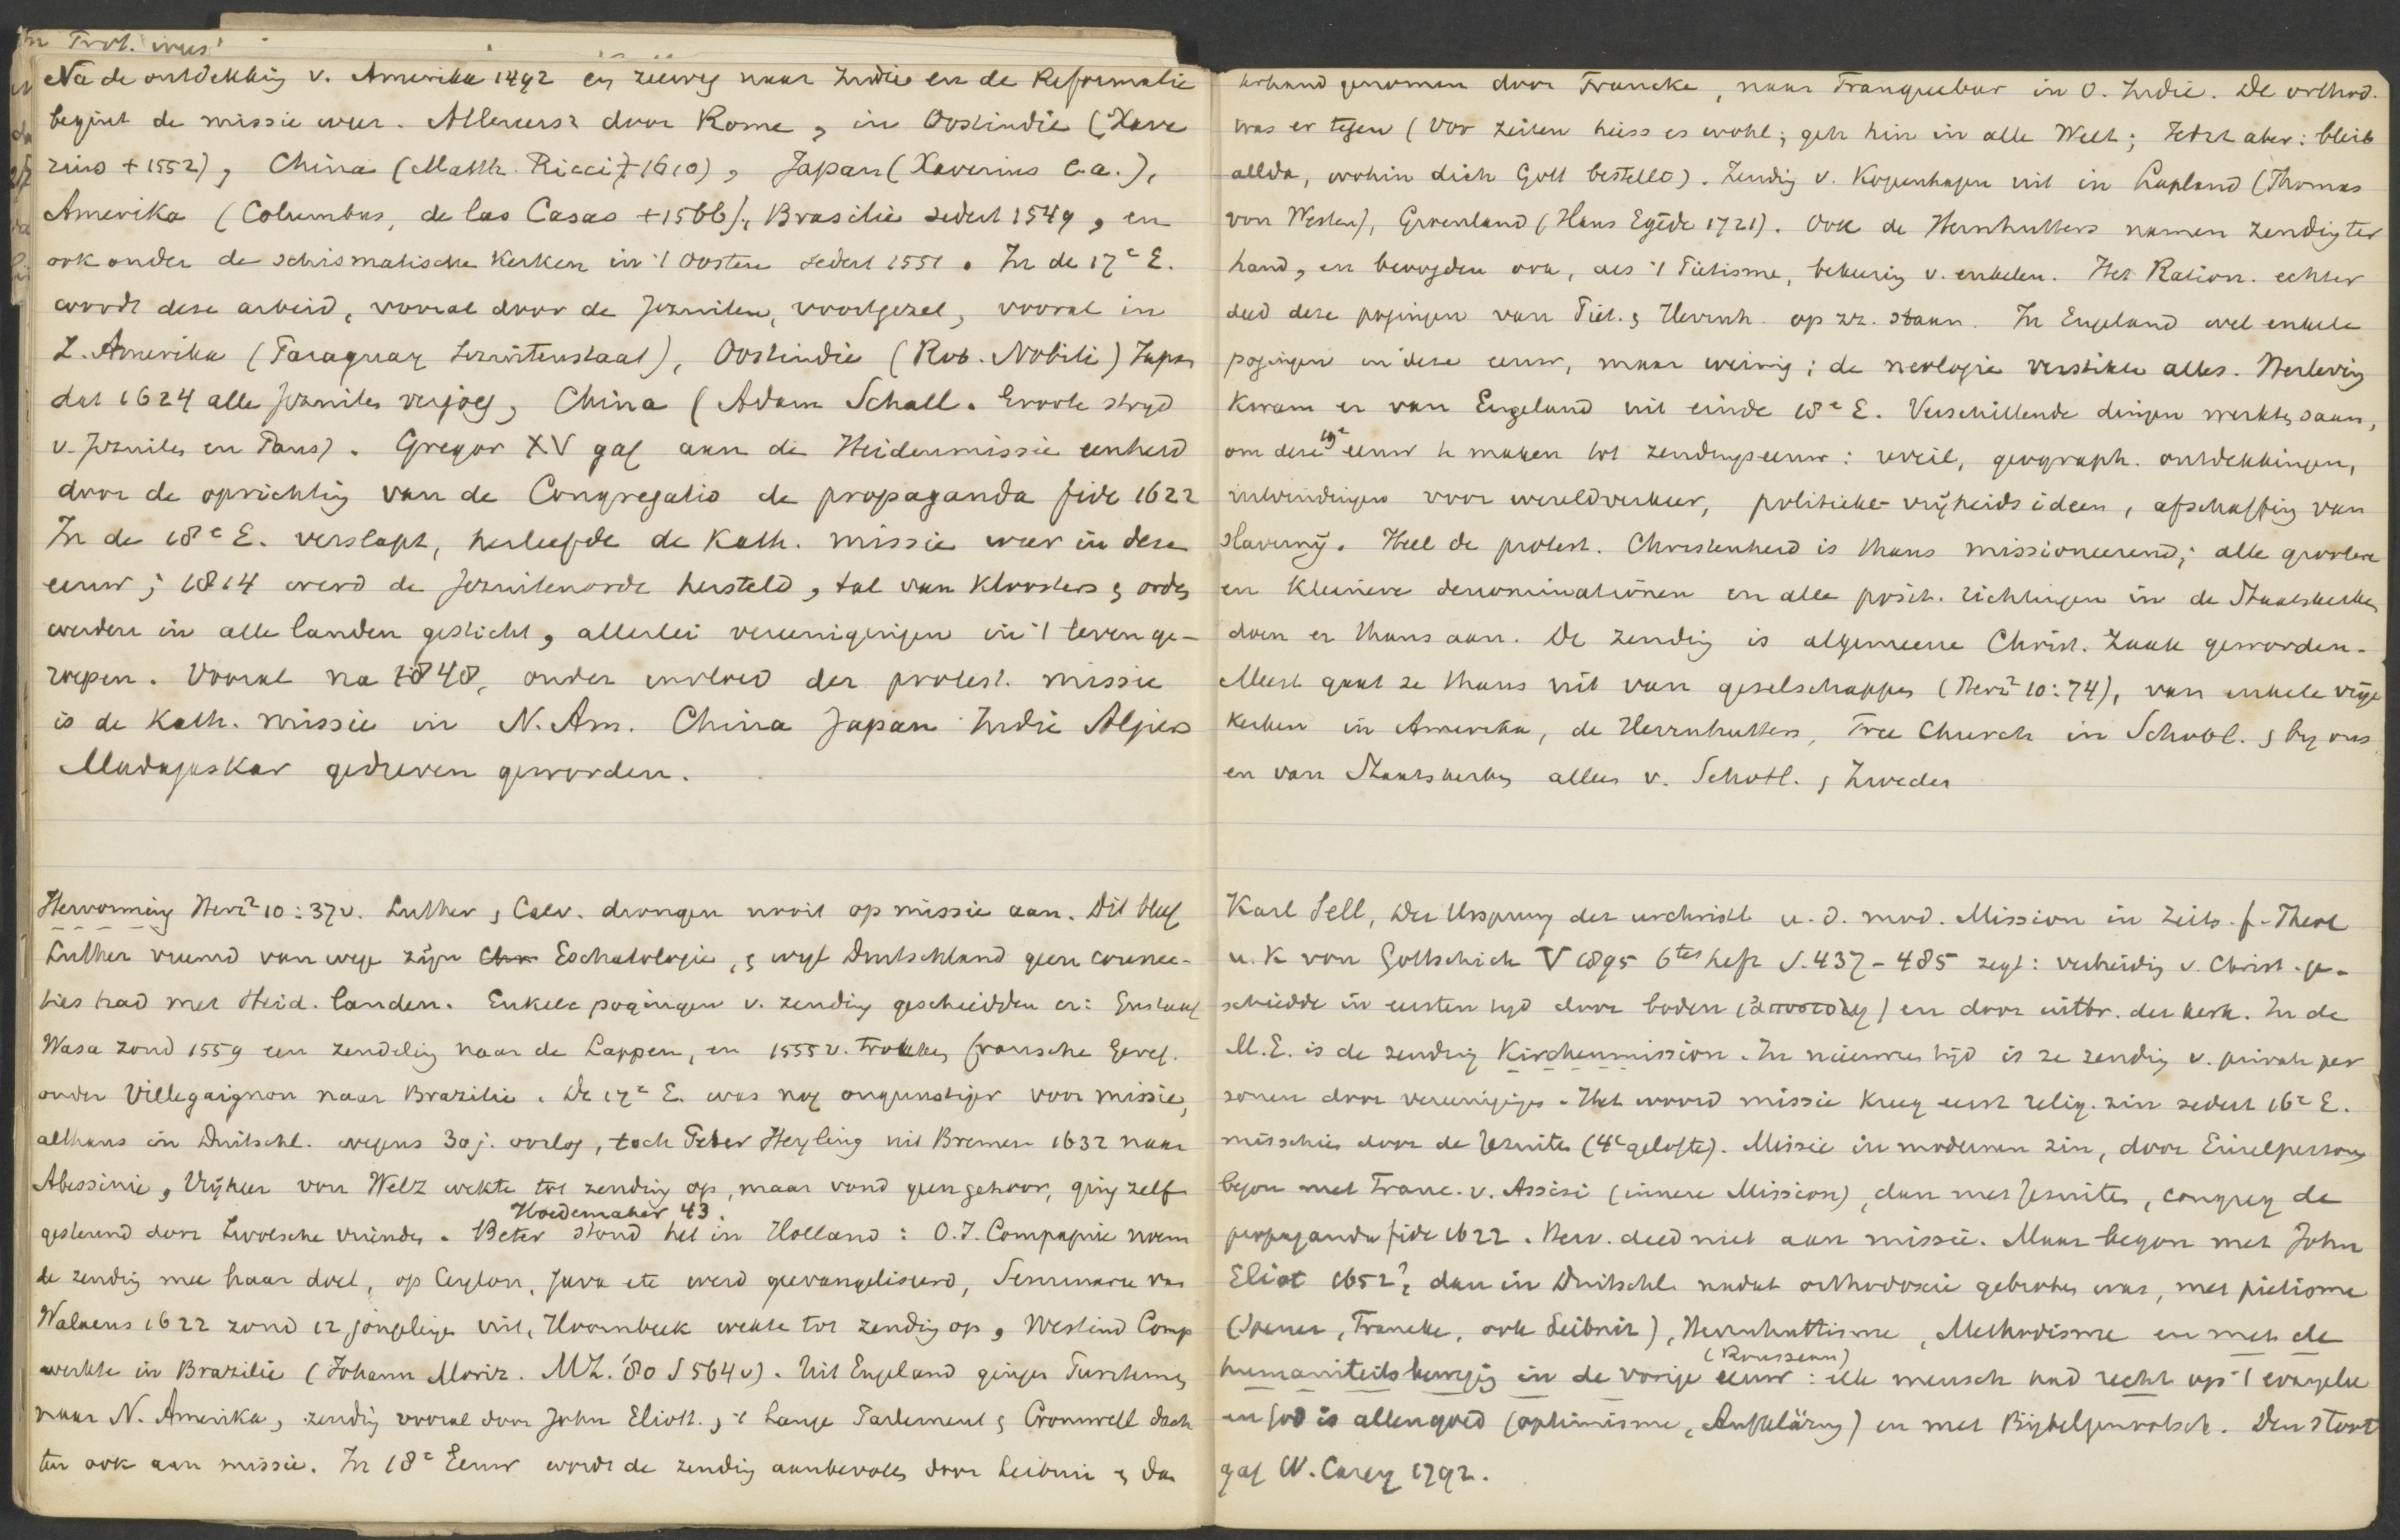 Na de ontdekking v. Amerika 1492 en zeeweg naar Indie en de Reformatie
begint de missie weer. Allereerst door Rome, in Oostindie (Xave
rius + 1552), China (Matth. Ricci + 1610), Japan (Xaverius e.a.),
Amerika (Columbus, de las Casas + 1566), Brasilie sedert 1549, en
ook onder de schismatische Kerken in 't Oosten sedert 1551. In de 17e E.
wordt deze arbeid, vooral door de Jezuiten, voortgezet, vooral in
Z. Amerika (Paraguay Jezuitenstaat), Oostindie (Rob. Nobili) Japan
dat 1624 alle Jezuiten verjoeg, China (Adam Schall. Groote stryd
v. Jezuiten en Paus). Gregor XV gaf aan de Heidenmissie eenheid
door de oprichting van de Congregatio de propaganda fide 1622
In de 18e E. verslapt, herleefde de Kath. missie weer in deze
eeuw; 1814 werd de Jezuitenorde hersteld, tal van Kloosters & orden
werden in alle landen gesticht, allerlei vereenigingen in 't leven ge-
roepen. Vooral na 1848, onder invloed der protest. missie
is de Kath. missie in N. Am. China Japan Indie Algiers
Madagaskar gedreven geworden.
Hervorming Herz2 10:37v. Luther & Calv. drongen nooit op missie aan. Dit bleef
Luther vreemd van wege zijn Chr Eschatologie, & wijl Duitschland geen connec-
ties had met Heid. landen. Enkele pogingen v. zending geschiedden er: Gustaaf
Wasa zond 1559 een zendeling naar de Lappen, en 1555 v. trokken fransche Geref.
onder Villegaignon naar Brazilie. De 17e E. was nog ongunstiger voor missie,
althans in Duitschl. wegens 30 j. oorlog, toch Peter Heyling uit Bremen 1632 naar
Abessinie, Vrijheer von Welz wekte tot zending op, maar vond geen gehoor, ging zelf
Hoedemaker 43.
gesteund door Zwolsche vrienden. Beter stond het in Holland: O.I. Compagnie noem
de zending mee haar doel, op Ceylon, Java etc werd geevangeliseerd, Seminarie van
Walaeus 1622 zond 12 jongelingen uit, Hoornbeek wekte tot zending op, Westind Comp
werkte in Brazilie (Johann Moriz. MZ. '80 S 564 v). Uit Engeland gingen Puriteinen
naar N. Amerika, zending vooral door John Eliott. & 't Lange Parlement & Cromwell dach
ten ook aan missie. In 18e Eeuw wordt de zending aanbevolen door Leibniz & dan
terhand genomen door Francke, naar Tranquebar in O. Indie. De orthod.
was er tegen (Vor Zeiten hiess es wohl; geh hin in alle Welt; Jetzt aber: bleib
allda, wohin dich Gott bestellt). Zending v. Kopenhagen uit in Lapland (Thomas
von Westen), Groenland (Hans Egede 1721). Ook de Hernhutters namen zending ter
hand, en beoogden ook, als 't Pietisme, bekeering v. enkelen. Het Ration. echter
deed deze pogingen van Piet. & Herrnh. op zz. staan. In Engeland wel enkele
pogingen in deze eeuw, maar weinig; de neologie verstikte alles. Herleving
kwam er van Engeland uit einde 18e E. Verschillende dingen werkten saam,
om deze 19e eeuw te maken tot zendingseeuw: geograph. ontdekkingen,
uitvindingen voor wereldverkeer, politieke vrijheids ideen, afschaffing van
slavernij. Heel de protest. Christenheid is thans missioneerend; alle grootere
en kleinere denominationen en alle posit. richtingen in de Staatskerken
doen er thans aan. De zending is algemeene Christ. zaak geworden.
Meest gaat ze thans uit van gezelschappen (Herz2 10:74), van enkele vrije
kerken in Amerika, de Herrnhutters, Free Church in Schotl. & by ons
en van Staatskerken alleen v. Schotl. & Zweden
Karl Sell, Der Ursprung der urchristl u. d. mod. Mission in Zeits. f. Theol
u. K von Gottschick V 1895 6tes heft S. 437-485 zegt: verbreiding v. Christ. ge-
schiedde in eersten tijd door boden (ἀποστολή) en door uitbr. der kerk. In de
M.E. is de zending Kirchenmission. In nieuwen tijd is ze zending v. private per
sonen door vereenigingen. Het woord missie kreeg eerst relig. zin sedert 16e E.
misschien door de Jezuiten (4e gelofte). Missie in modernen zin, door Einzelpersonen
begon met Franc. v. Assisi (innere Mission), dan met Jesuiten, congreg de
propaganda fide 1622. Herv. deed niet aan missie. Maar begon met John
Eliot 1652?, dan in Duitschl. nadat orthodoxie gebroken was, met pietisme
(Spener, Francke, ook Leibniz), Herrnhuttisme, Methodisme en met de
(Rousseau)
humaniteitsbeweging in de vorige eeuw: elk mensch had recht op 't evangelie
en God is allen goed (optimisme, Aufklärung) en met Bijbelgenootsch. Den stoot
gaf W. Carey 1792.